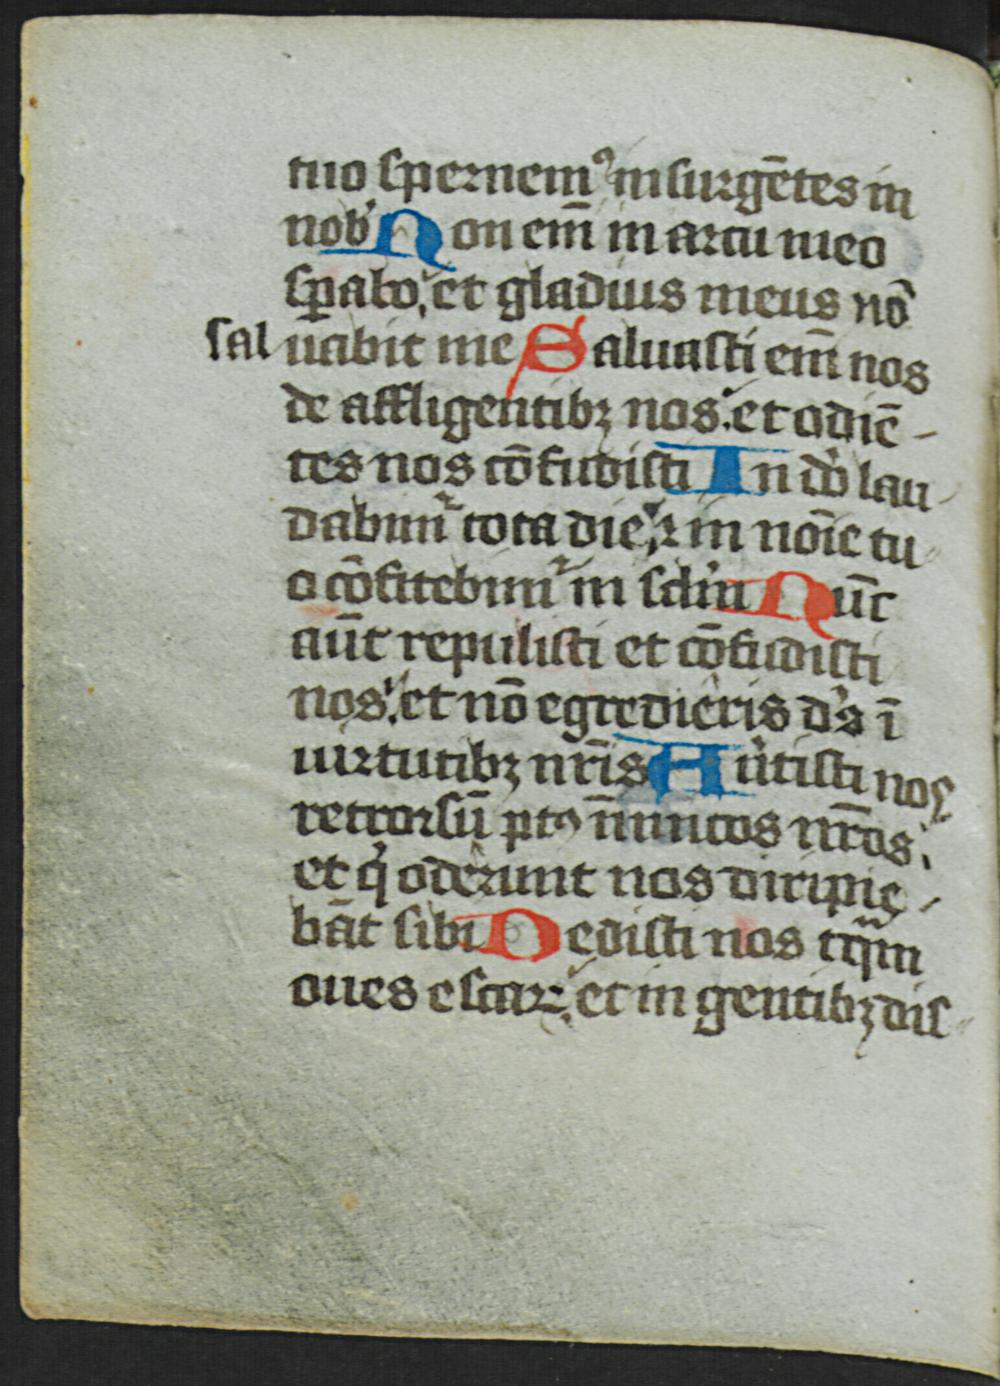 tuo spernemꝰ insurgētes in
nob' Non em̄ in arcu meo
sꝑabo, et gladius meus nō
saluabit me Saluasti em̄ nos
de affligentibꝫ nos. et odiē-
tes nos cōfudisti In do lau
dabimur tota die, ⁊ in noīe tu
o cōfitebimur in sclm Nūc
aūt repulisti et cōfudisti
nos, et nō egredieris ds ī
uirtutibꝫ nr̄is Auertisti nos
retrorsū ptꝰ inimicos nr̄os,
et q̇ oderunt nos diripie-
bāt sibi Dedisti nos tq̄m
oues escarꝝ, et in gentibꝫ dis